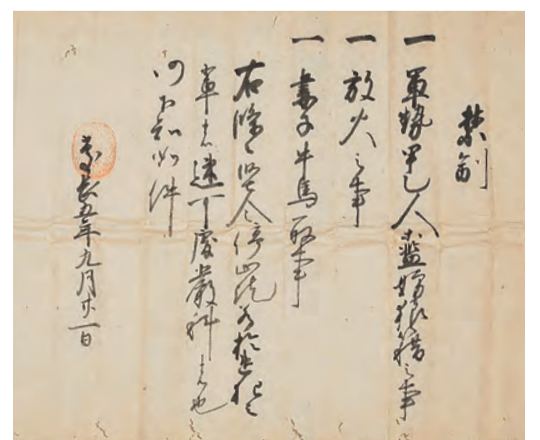 禁制
一 軍勢甲乙人等濫妨狼籍之事
一 放火之事
一 妻子牛馬取事
右條々堅令停止訖若於違犯之
輩者速可處嚴科者也
仍下知如件
慶長五年九月廿一日